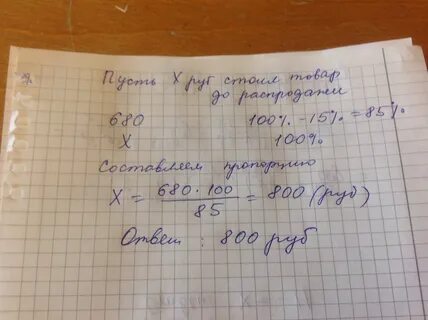 Пусть X руб стоил товар
до распродажи
680 100% -15% = 85%
X 100%
Составляем пропорцию
X = 680 · 100 / 85 = 800 (руб)
Ответ : 800 руб